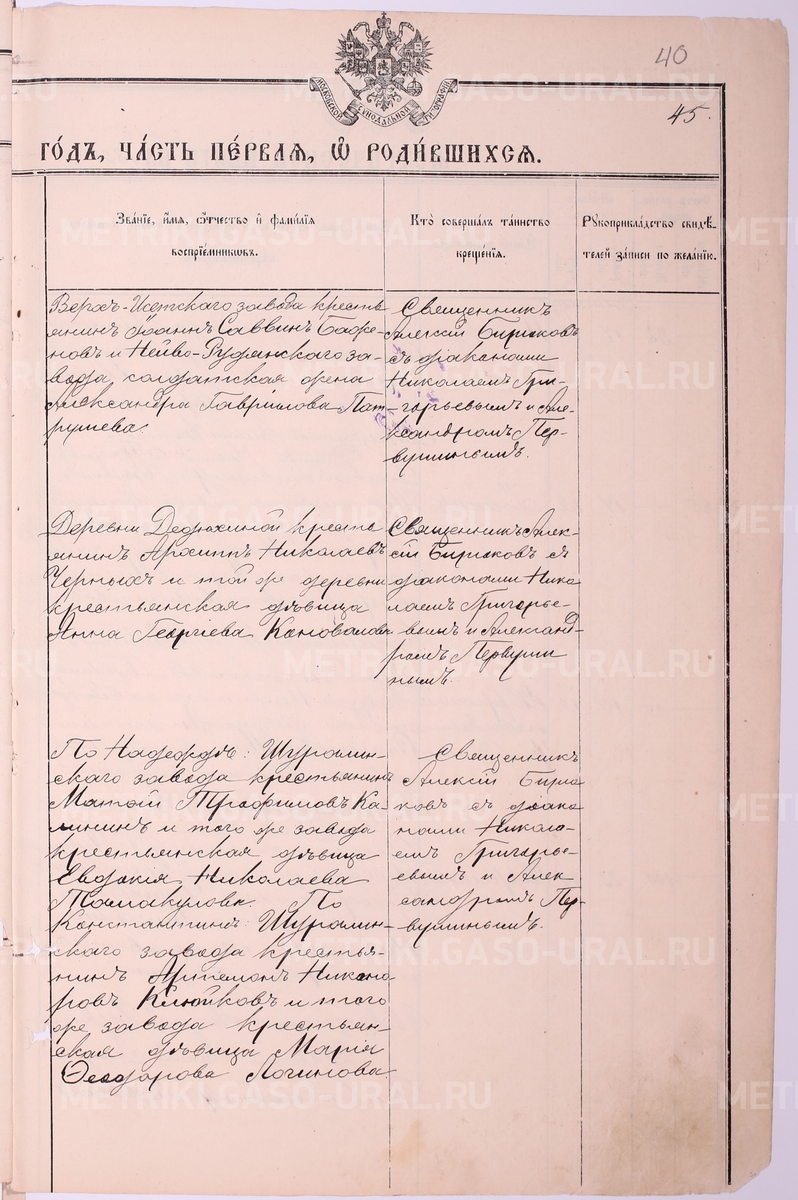 40
45.
МОСКОВСКОЙ СѴНОДАЛЬНОЙ ТИПОГРАФІИ
ГО́ДЪ, ЧА́СТЬ ПЕ́РВАѦ, Ѡ҆ РОДИ́ВШИХСѦ.
Зва́нїе, и҆́мѧ, ѻ҆́тчество и҆ фами́лїѧ
воспрїе́мниковъ.
Кто̀ соверша́лъ та́инство
креще́нїѧ.
Рꙋкоприкла́дство свидѣ́-
телей за́писи по жела́нїю.
Верхъ-Исетскаго завода кресть
янинъ Іоаннъ Саввинъ Баже-
новъ и Нейво-Рудянскаго за-
вода, солдатская жена
Александра Гавріилова Пат-
рушева.
Священникъ
Алексій Бирюковъ
съ діаконами
Николаемъ Гри-
горьевымъ и Але-
ксандромъ Пер-
вушинымъ.
Деревни Дедюхиной кресть
янинъ Архипъ Николаевъ
Черныхъ и той же деревни
крестьянская дѣвица
Анна Георгіева Коновалова
Священникъ Алек-
сій Бирюковъ съ
діаконами Нико
лаемъ Григорье-
вымъ и Александ-
ромъ Первуши
нымъ.
По Надеждѣ: Шуралин-
скаго завода крестьянинъ
Матѳій Трофимовъ Ка-
лининъ и того же завода
крестьянская дѣвица
Евдокія Николаева
По
Константинѣ: Шуралин-
скаго завода крестья-
нинъ Артемонъ Никано
ровъ Клюйковъ и того
же завода крестьян-
ская дѣвица Марія
Ѳеодорова Логинова.
Священникъ
Алексій Бирю
ковъ съ діако
нами Никола-
емъ Григорье-
евымъ и Алек
сандромъ Пер-
вушинымъ.
METRIKI.GASO-URAL.RU